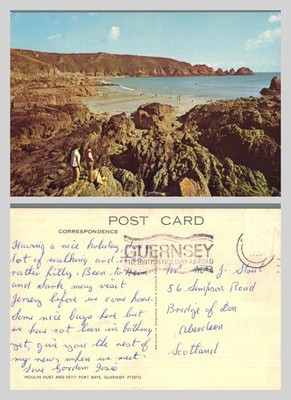 POST CARD
CORRESPONDENCE
GUERNSEY
THE BRITISH HOLIDAY ABROAD
Having a nice holiday,
lot of walking and it
rather hilly. Been to Herm
and Sark, may visit
Jersey before we come home.
Some nice bays here but
we has not been in bathing
yet, give you the rest of
my news when we meet.
Love Gordon
Mr J. Stout
56 Simpson Road
Bridge of Don
Aberdeen
Scotland
MOULIN HUET AND PETIT PORT BAYS, GUERNSEY